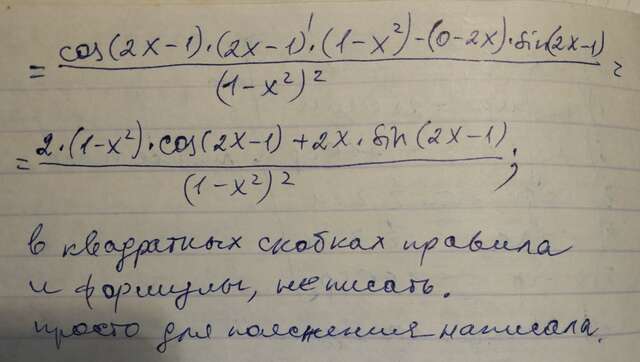 = cos(2x-1)·(2x-1)'·(1-x²)-(0-2x)·sin(2x-1) / (1-x²)² =
= 2·(1-x²)·cos(2x-1)+2x·sin(2x-1) / (1-x²)² ;
в квадратных скобках правила
и формулы, не писать.
просто для пояснения написала.